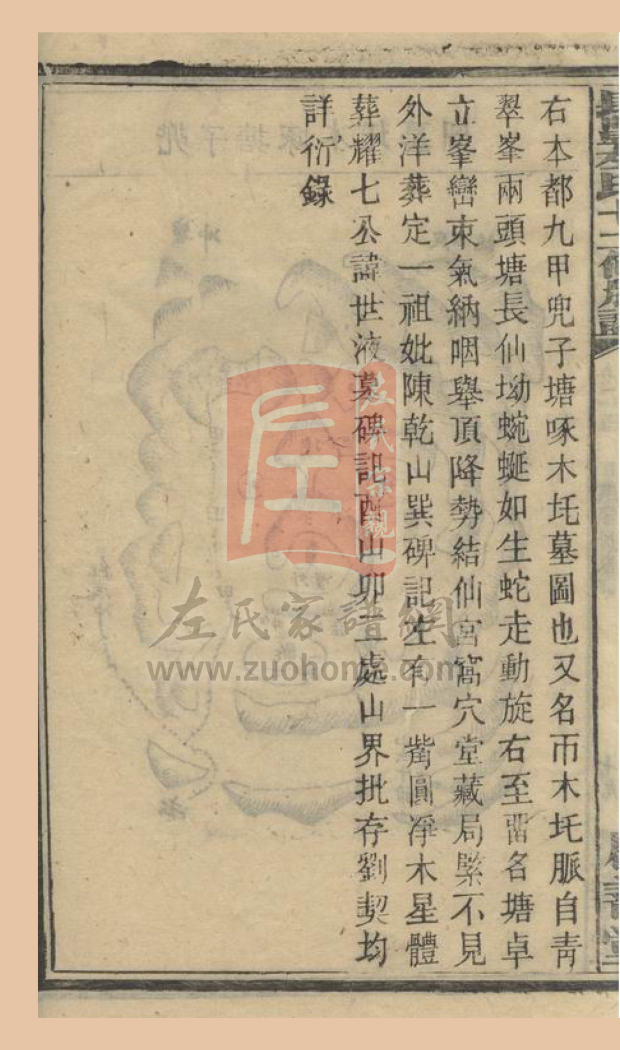 右本都九甲兜子塘啄木圫墓圖也又名帀木圫脈自靑
翠峯兩頭塘長仙坳蜿蜒如生蛇走動旋右至畱名塘卓
立峯巒束氣納咽舉頂降勢結仙宮窩穴堂藏局緊不見
外洋葬定一祖妣陳乾山巽碑記左有一嘴圓淨木星體
葬耀七公諱世液墓碑記酉山卯二處山界批存劉契均
詳衍錄
左氏家譜網
www.zuohome.com